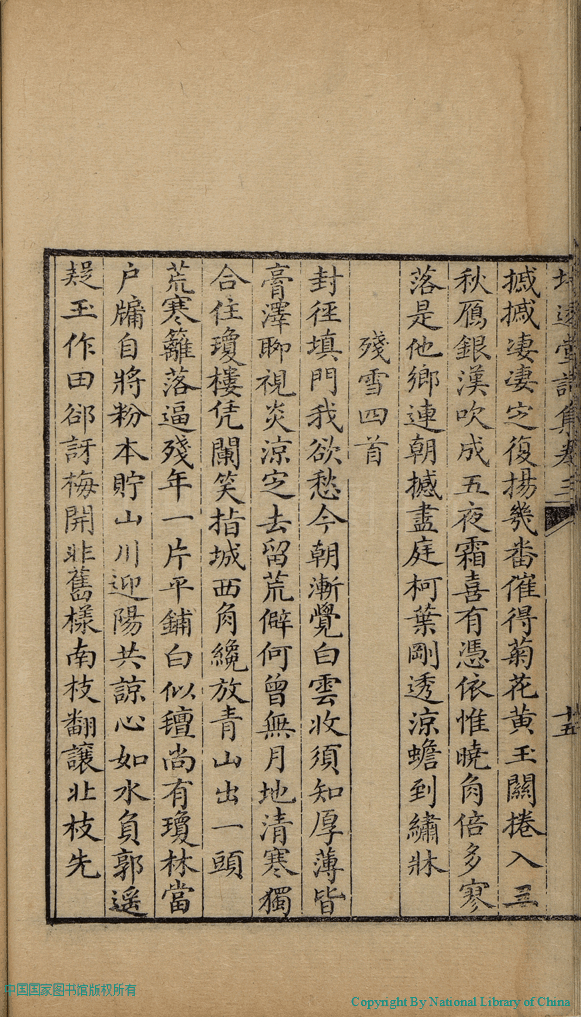 堂詩集卷三
十五
摵摵凄凄定復揚幾番催得菊花黃玉關捲入三
秋鴈銀漢吹成五夜霜喜有憑依惟曉角倍多寒
落是他鄉連朝撼盡庭柯葉剛透涼蟾到繡牀
殘雪四首
封徑填門我欲愁今朝漸覺白雲收須知厚薄皆
膏澤聊視炎涼定去留荒僻何曾無月地清寒獨
合住瓊樓凭闌笑指城西角纔放青山出一頭
荒寒籬落逼殘年一片平鋪白似氊尚有瓊林當
户牖自將粉本貯山川迎陽共諒心如水負郭遥
疑玉作田郤訝梅開非舊樣南枝翻讓北枝先
中国国家图书馆版权所有
Copyright By National Library of China